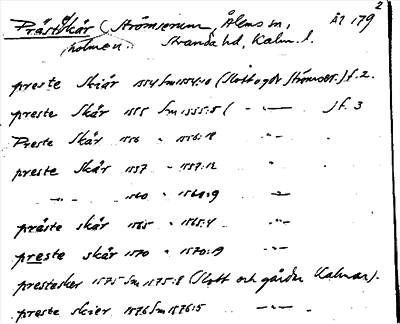 Prästskär (Strömserum, Ålems sn, Ål 179 2
holmen Stranda hd, Kalm. l.
preste Skiär 1554 Sm 1554:10 (Slott o gdr Strömser.) f. 2.
preste Skär 1555 Sm 1555:5 ( — " — ) f. 3
Preste Skär 1556 " 1556:18 — " —
preste Skär 1557 " 1557:12 — " —
— " — 1560 " 1560:9 — " —
präste skär 1565 " 1565:4 — " —
preste skär 1570 " 1570:19 — " —
prestesker 1575 Sm 1575:8 (Slott och gårdar Kalmar).
preste skier 1576 Sm 1576:5 — " —